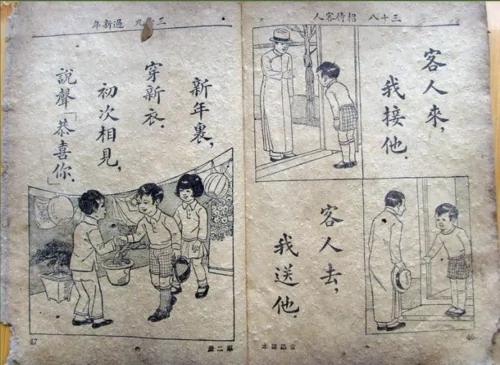 三十八 招待客人
客人來，
我接他．
客人去，
我送他．
46
三十九 過新年
新年裏，
穿新衣．
初次相見，
說聲「恭喜你．」
47